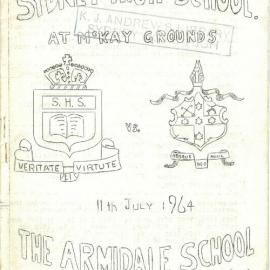 SYDNEY HIGH SCHOOL.
K. J. ANDREWS LIBRARY
AT McKAY GROUNDS
S.H.S.
vs.
VERITATE VIRTUTE
ET
11th JULY 1964
THE ARMIDALE SCHOOL